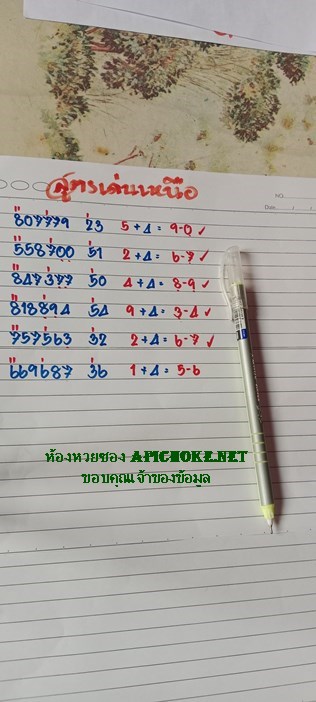 สูตรเด่นเหนือ
NO.
Date / /
807779 23 5+4= 9-0 ✓
558700 51 2+4= 6-7 ✓
847377 50 4+4= 8-9 ✓
818894 54 9+4= 3-4 ✓
757563 32 2+4= 6-7 ✓
669687 36 1+4= 5-6
ห้องหวยซอง APICHOKE.NET
ขอบคุณเจ้าของข้อมูล